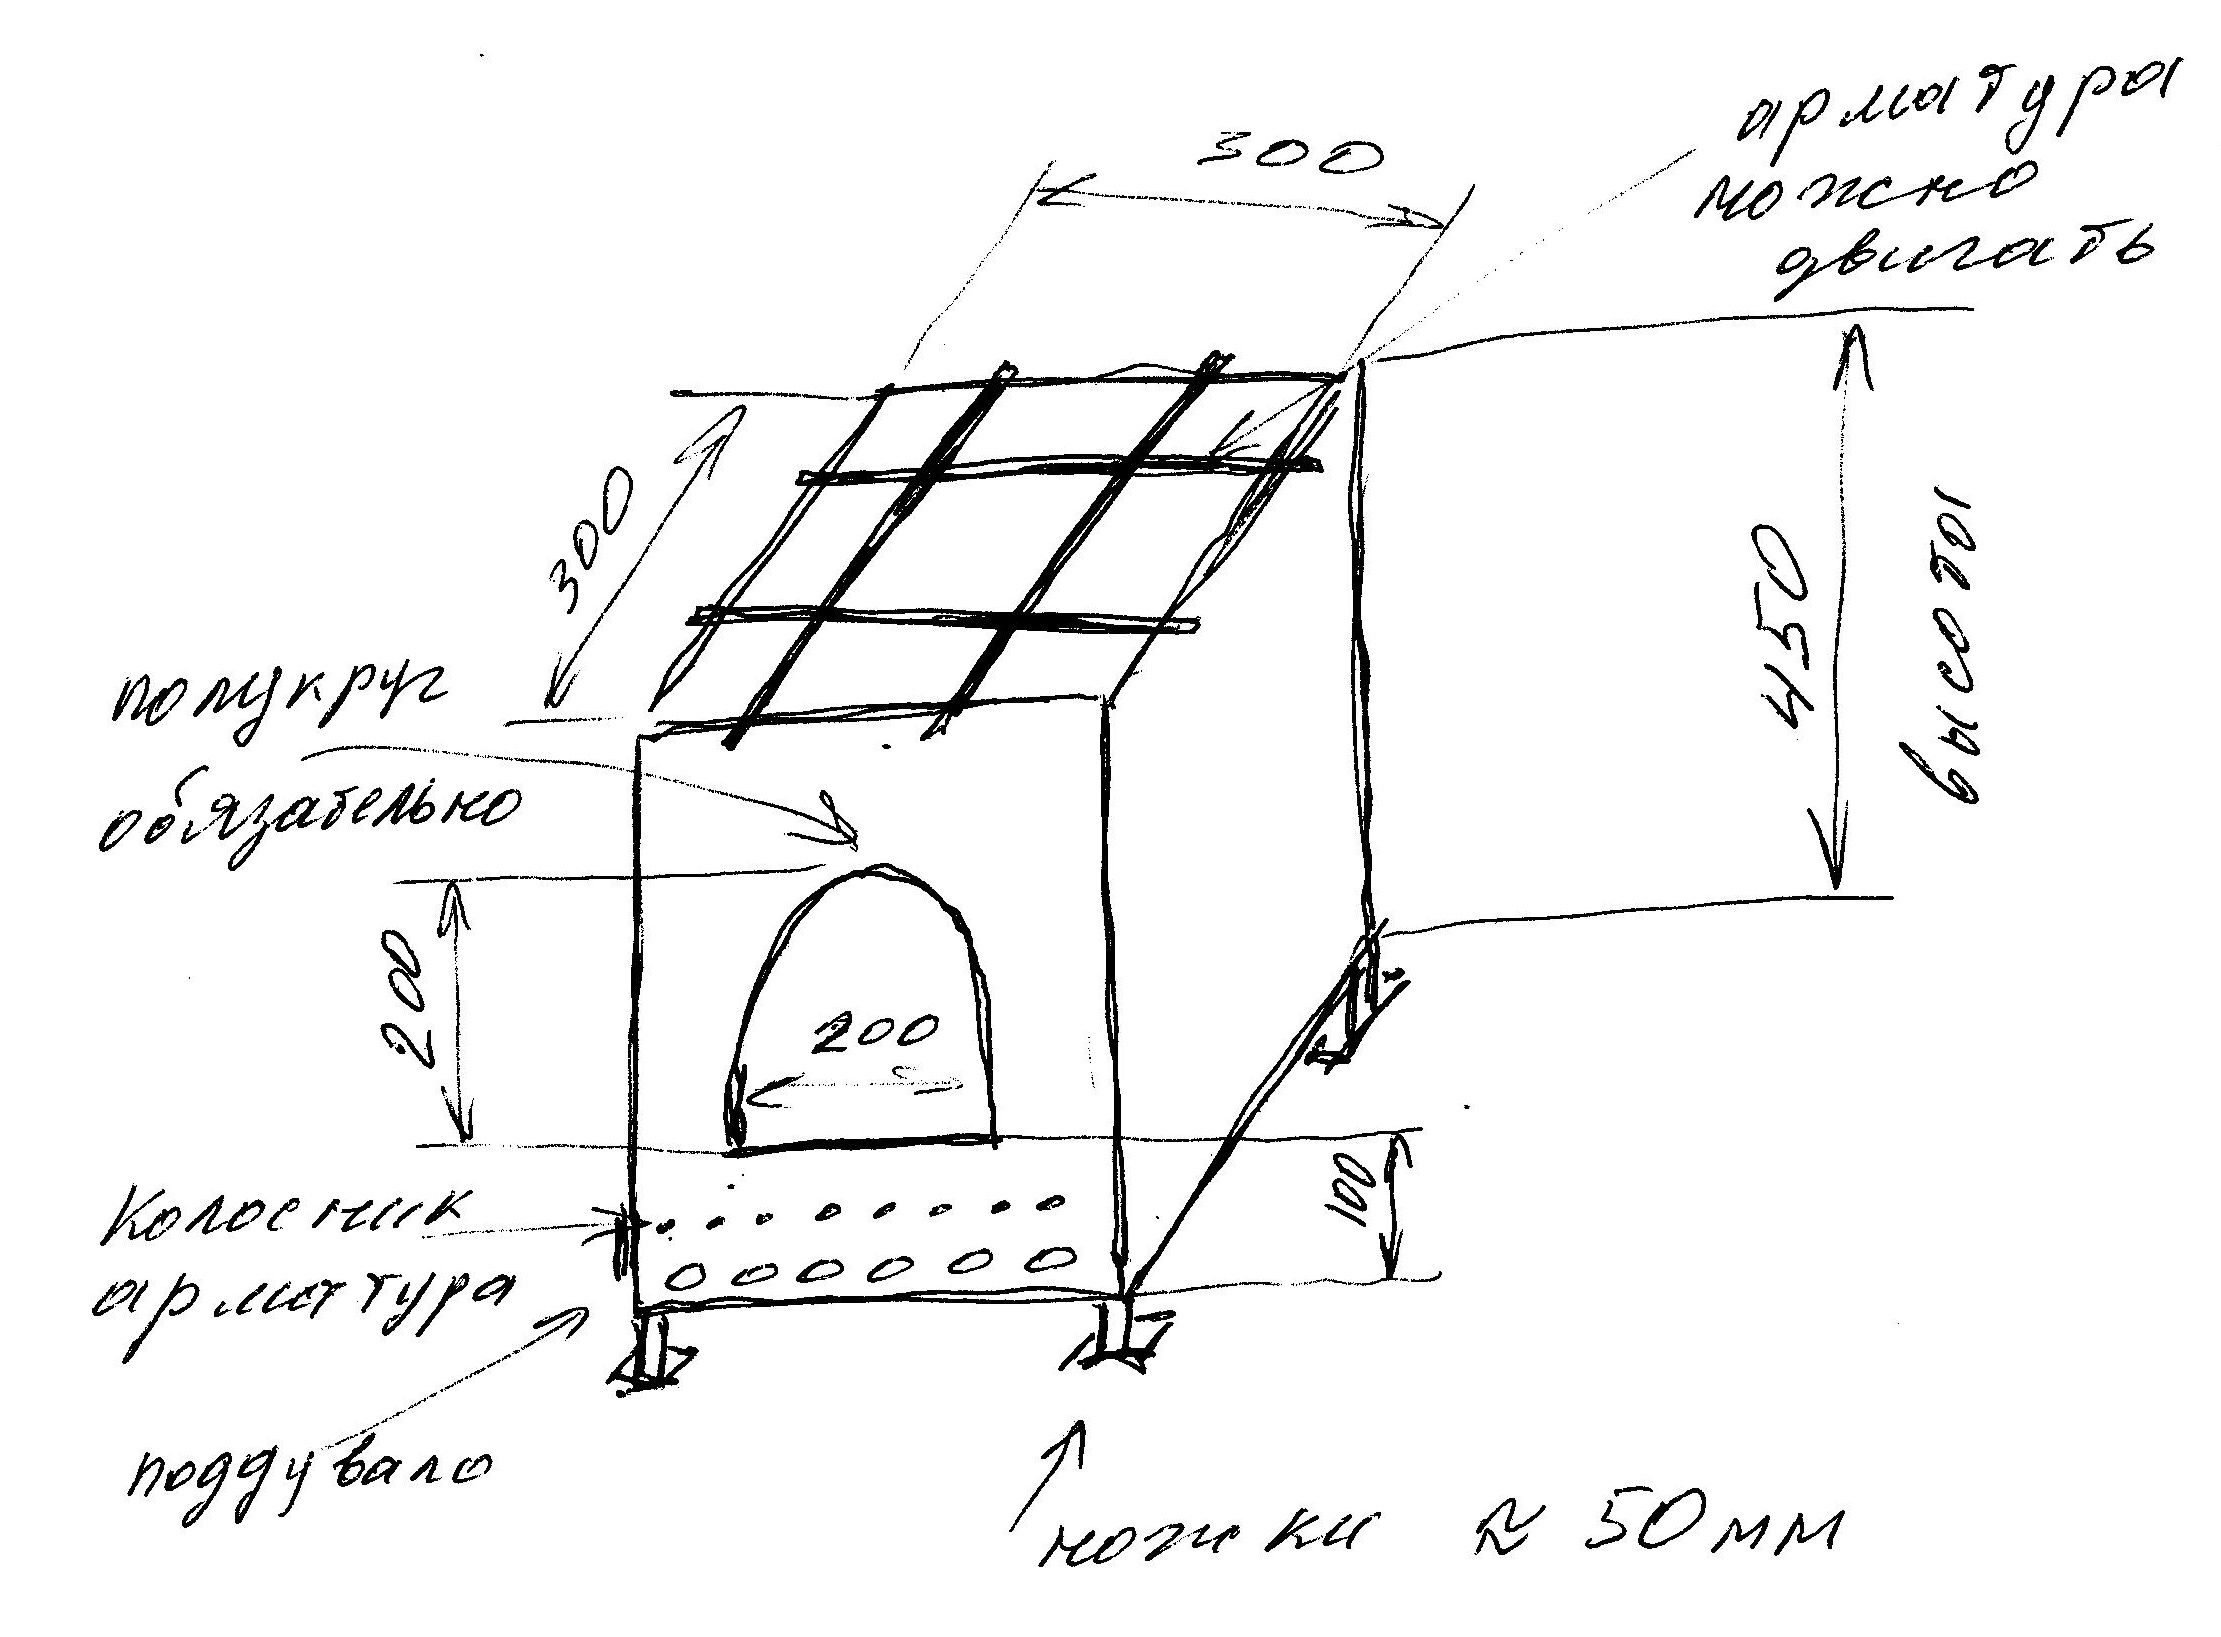 300
арматура
можно
двигать
300
450
высоты
полукруг
обязательно
200
200
Колосник
арматура
100
поддувало
ножки ≈ 50мм